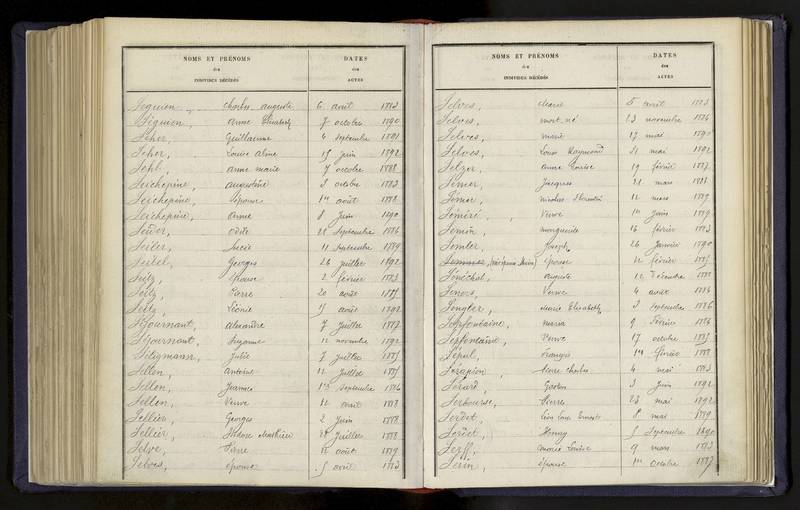 NOMS ET PRÉNOMS
des
INDIVIDUS DÉCÉDÉS
DATES
des
ACTES
Seguien Charles auguste 6 août 1883
Séguien, anne Elisabeth 7 octobre 1890
Seher, Guillaume 4 septembre 1891
Seher, Louise aline 15 juin 1892
Sehl, anne marie 7 octobre 1888
Seichepine, augustine 3 octobre 1883
Seichepine, Epouse 1er août 1888
Seichepine, anne 8 juin 1890
Seider, odile septembre 1886
Seiler, Lucie 11 septembre 1889
Seitel, Georges 26 juillet 1892
Seitz, épouse 2 février 1883
Seitz, Pierre 20 août 1885
Seitz, Léonie 15 août 1892
Séjournant, alexandre 7 juillet 1887
Séjournant, Suzanne 12 novembre 1892
Seligmann, Julie 7 juillet 1885
Sellen, antoine 12 juillet 1885
Sellen, Jeanne 1er septembre 1886
Sellen, Veuve 12 1888
Sellier, Georges 2 juin 1888
Sellier, Mathieu juillet 1888
Selve, Pierre août 1889
Selves, épouse 5 avril 1883
NOMS ET PRÉNOMS
des
INDIVIDUS DÉCÉDÉS
DATES
des
ACTES
Selves, Marie 5 avril 1883
Selves, mort-né 23 novembre 1886
Selves, marie 17 mai 1890
Selves, Louis Raymond 21 mai 1892
Selzer, anne Louise 19 février 1887
Sémer, Jacques 21 mars 1888
Sémer, nicolas Florentin 12 mars 1889
Séméré, Veuve 1er juin 1889
Semin, marguerite 16 février 1883
Semler, Joseph 26 Janvier 1890
épouse 12 février 1885
Sénéchal, auguste 12 Décembre 1888
Seners, Veuve 4 août 1886
Sengler, marie Elisabeth 3 septembre 1886
Sepfontaine, maria 9 Février 1886
Sepfontaine, Veuve 17 octobre 1885
Sépul, François 1er février 1888
Sérapion, Pierre Charles 4 mai 1883
Sérard, Gaston 3 juin 1892
Serbourse, Pierre 23 mai 1892
Serdet, Léon Ernest 8 mai 1889
Serdet, Henry 5 septembre 1890
Serff, marie Louise 9 mars 1883
Serin, épouse 1er octobre 1887